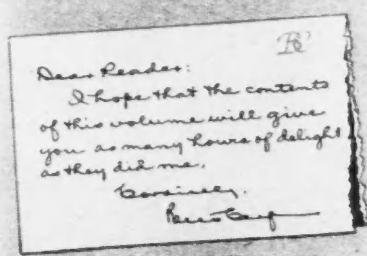 BC
Dear Reader:
I hope that the contents
of this volume will give
you as many hours of delight
as they did me.
Cordially,